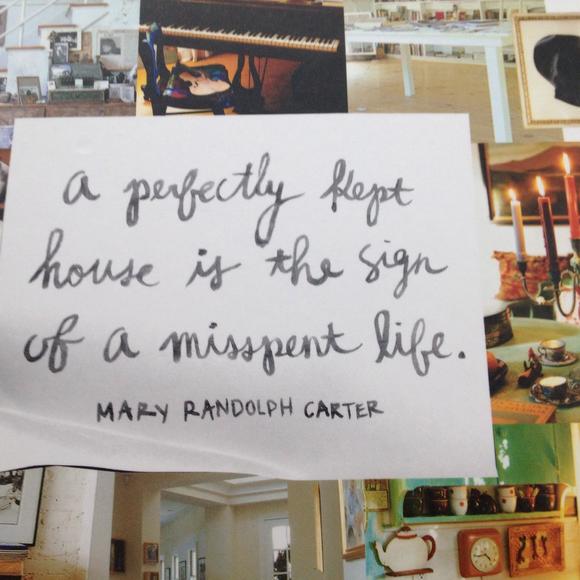 a perfectly kept
house is the sign
of a misspent life.
MARY RANDOLPH CARTER